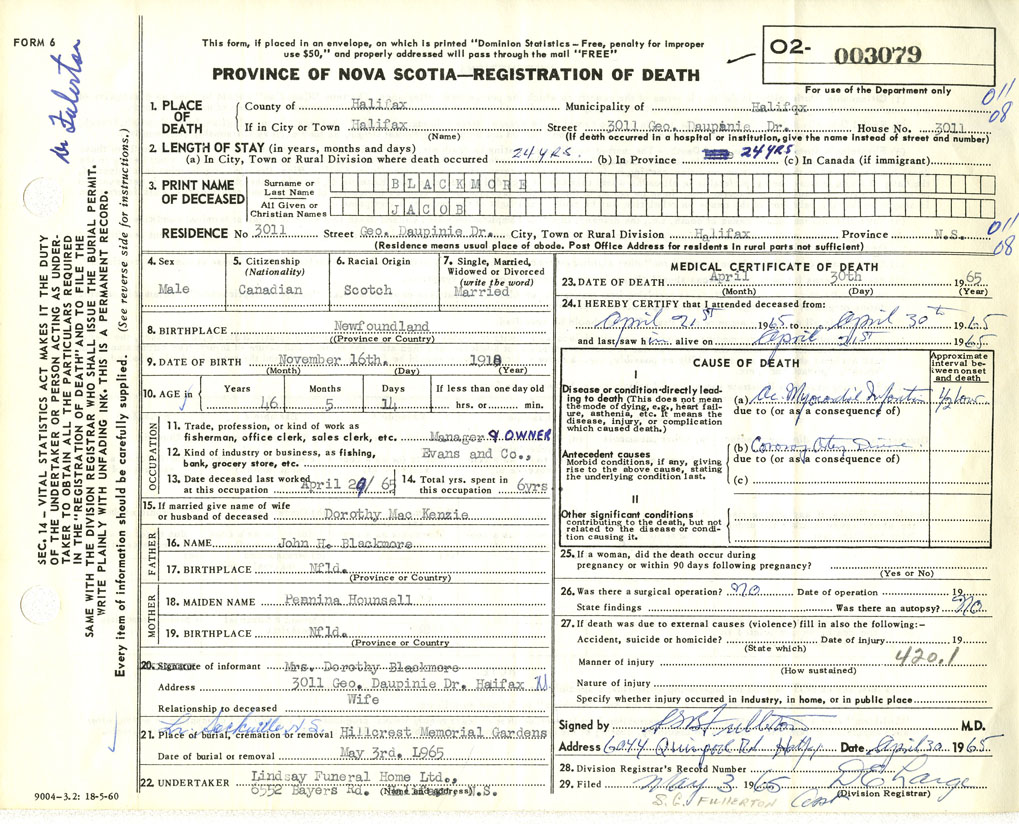 FORM 6
This form, if placed in an envelope, on which is printed "Dominion Statistics – Free, penalty for improper
use $50," and properly addressed will pass through the mail "FREE"
PROVINCE OF NOVA SCOTIA—REGISTRATION OF DEATH
O2- 003079
For use of the Department only
Dr Fulerton
SEC. 14 – VITAL STATISTICS ACT MAKES IT THE DUTY
OF THE UNDERTAKER OR PERSON ACTING AS UNDER-
TAKER TO OBTAIN ALL THE PARTICULARS REQUIRED
IN THE "REGISTRATION OF DEATH" AND TO FILE THE
SAME WITH THE DIVISION REGISTRAR WHO SHALL ISSUE THE BURIAL PERMIT.
WRITE PLAINLY WITH UNFADING INK. THIS IS A PERMANENT RECORD.
Every item of information should be carefully supplied. (See reverse side for instructions.)
1. PLACE OF DEATH
County of Halifax Municipality of Halifax
011
08
If in City or Town Halifax Street 3011 Geo. Daupinie Dr. House No. 3011
(Name) (If death occurred in a hospital or institution, give the name instead of street and number)
2. LENGTH OF STAY (in years, months and days)
(a) In City, Town or Rural Division where death occurred 24 YRS. (b) In Province 24 YRS. (c) In Canada (if immigrant)
3. PRINT NAME OF DECEASED
Surname or Last Name BLACKMORE
All Given or Christian Names JACOB
RESIDENCE No 3011 Street Geo. Daupinie Dr. City, Town or Rural Division Halifax Province N.S.
011
08
(Residence means usual place of abode. Post Office Address for residents in rural parts not sufficient)
4. Sex
Male
5. Citizenship
(Nationality)
Canadian
6. Racial Origin
Scotch
7. Single, Married,
Widowed or Divorced
(write the word)
Married
8. BIRTHPLACE Newfoundland
((Province or Country)
9. DATE OF BIRTH November 16th. 1918
(Month) (Day) (Year)
10. AGE in
Years Months Days If less than one day old
46 5 14 hrs. or min.
OCCUPATION
11. Trade, profession, or kind of work as
fisherman, office clerk, sales clerk, etc. Manager & OWNER
12. Kind of industry or business, as fishing,
bank, grocery store, etc. Evans and Co.,
13. Date deceased last worked
at this occupation April 29/ 65
14. Total yrs. spent in
this occupation 6yrs
15. If married give name of wife
or husband of deceased Dorothy Mac Kenzie
FATHER
16. NAME John H. Blackmore
17. BIRTHPLACE Nfld.
(Province or Country)
MOTHER
18. MAIDEN NAME Pennina Hounsell
19. BIRTHPLACE Nfld.
(Province or Country
20. Signature of informant Mrs. Dorothy Blackmore
Address 3011 Geo. Daupinie Dr. Haifax N
Relationship to deceased Wife
Lr Sackville N.S.
21. Place of burial, cremation or removal Hillcrest Memorial Gardens
Date of burial or removal May 3rd. 1965
22. UNDERTAKER Lindsay Funeral Home Ltd.,
6552 Bayers Rd. (Name and address) N.S.
9004-3.2: 18-5-60
MEDICAL CERTIFICATE OF DEATH
23. DATE OF DEATH April 30th 1965
(Month) (Day) (Year)
24. I HEREBY CERTIFY that I attended deceased from:
April 21st 1965 to April 30th 1965
and last saw him alive on April 21st 1965
CAUSE OF DEATH
Approximate
interval be-
tween onset
and death
I
Disease or condition directly lead-
ing to death (This does not mean
the mode of dying, e.g., heart fail-
ure, asthenia, etc. It means the
disease, injury, or complication
which caused death.)
(a) Ac. Myocardial Infarction 1/2 hour
due to (or as a consequence of)
Antecedent causes
Morbid conditions, if any, giving
rise to the above cause, stating
the underlying condition last.
(b) Coronary Artery Disease
due to (or as a consequence of)
(c)
II
Other significant conditions
contributing to the death, but not
related to the disease or condi-
tion causing it.
25. If a woman, did the death occur during
pregnancy or within 90 days following pregnancy?
(Yes or No)
26. Was there a surgical operation? NO Date of operation 19
State findings Was there an autopsy? NO
27. If death was due to external causes (violence) fill in also the following:–
Accident, suicide or homicide? Date of injury 19
(State which)
420.1
Manner of injury
(How sustained)
Nature of injury
Specify whether injury occurred in industry, in home, or in public place
Signed by Fullerton M.D.
Address 6044 Quinpool Rd Halifax Date April 30 1965
28. Division Registrar's Record Number
29. Filed May 3 1965 D E Large
(Division Registrar)
S. G. FULLERTON